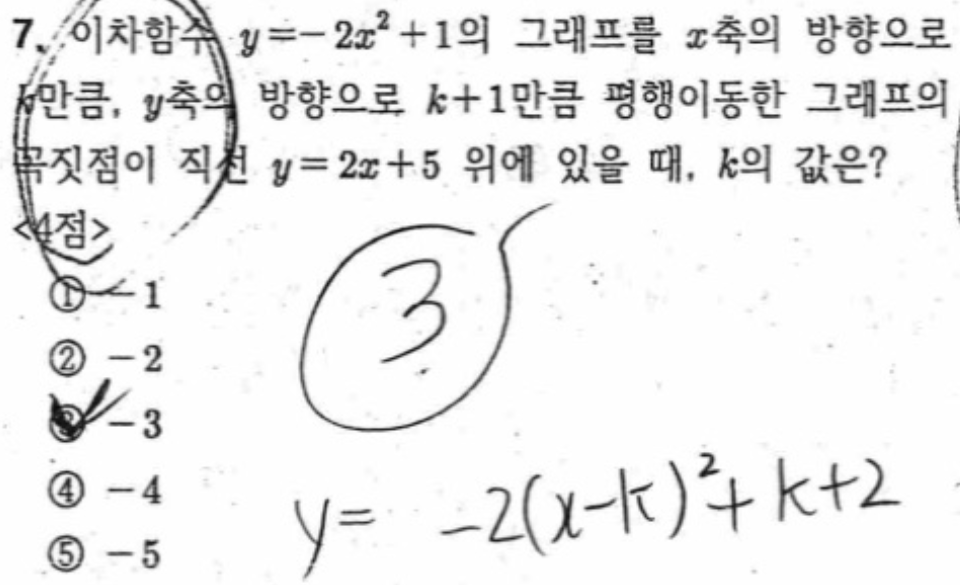 7. 이차함수 y=-2x²+1의 그래프를 x축의 방향으로
k만큼, y축의 방향으로 k+1만큼 평행이동한 그래프의
꼭짓점이 직선 y=2x+5 위에 있을 때, k의 값은?
<4점>
① -1
② -2
③ -3
④ -4
⑤ -5
3
y= -2(x-k)²+k+2